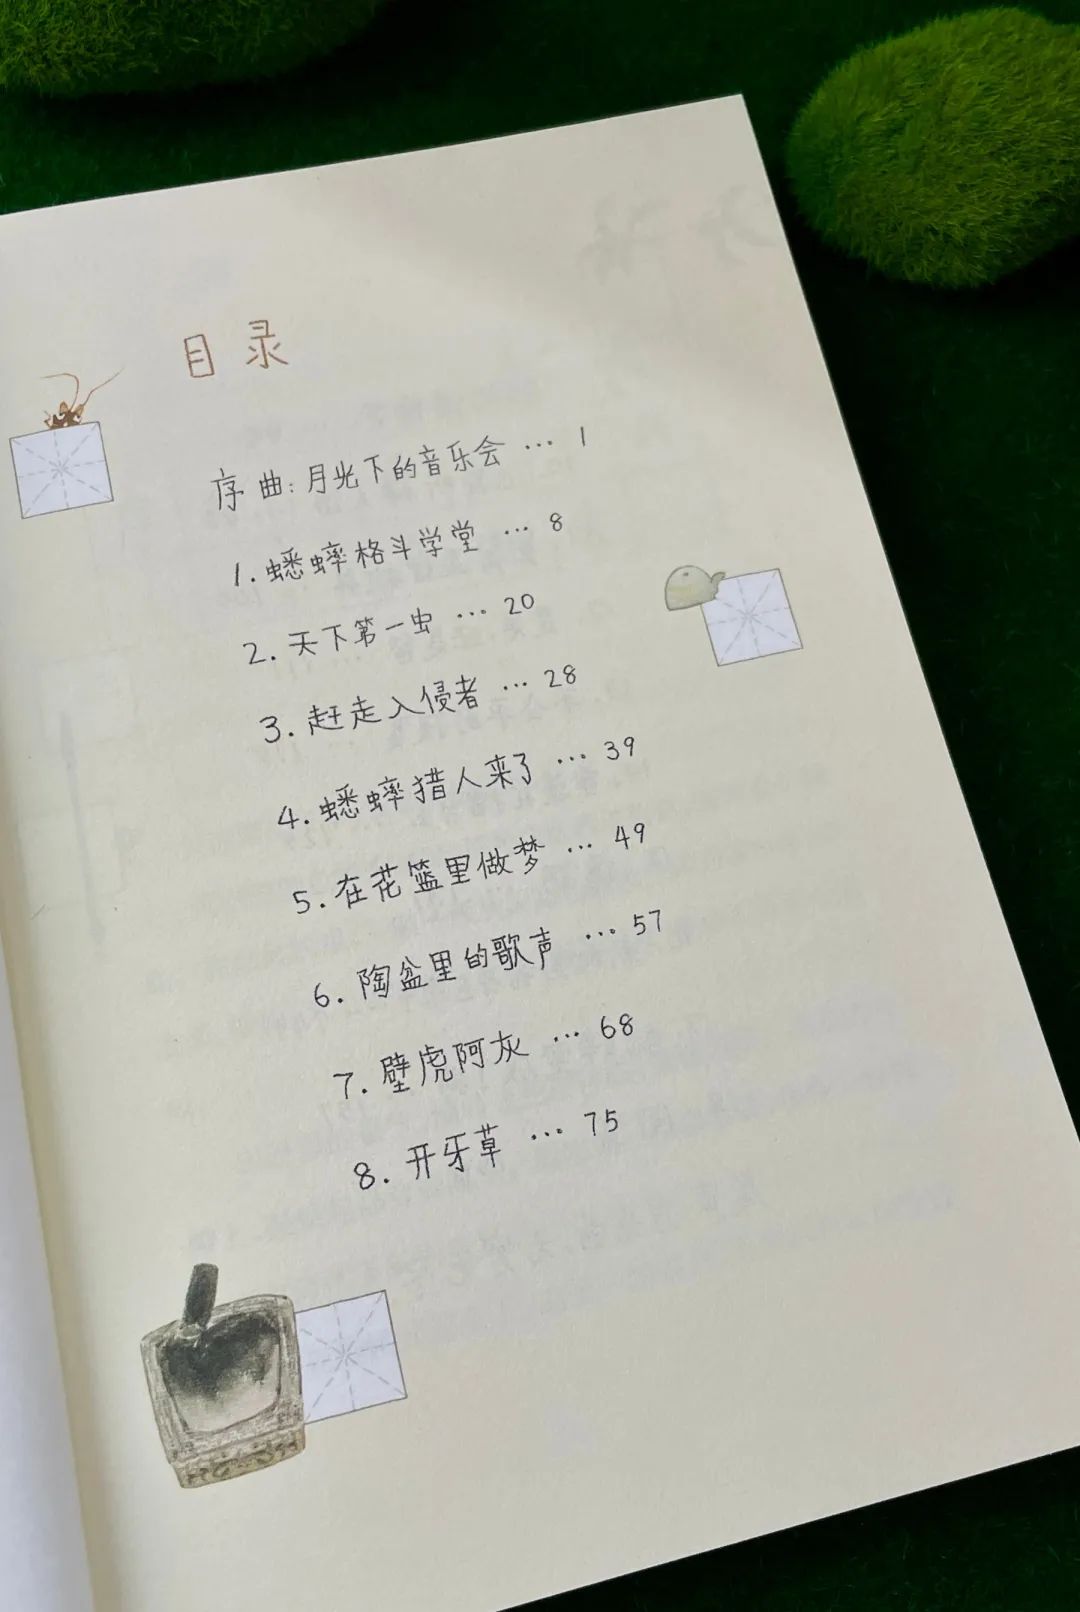 目录
序曲:月光下的音乐会 … 1
1.蟋蟀格斗学堂 … 8
2.天下第一虫 … 20
3.赶走入侵者 … 28
4.蟋蟀猎人来了 … 39
5.在花篮里做梦 … 49
6.陶盆里的歌声 … 57
7.壁虎阿灰 … 68
8.开牙草 … 75